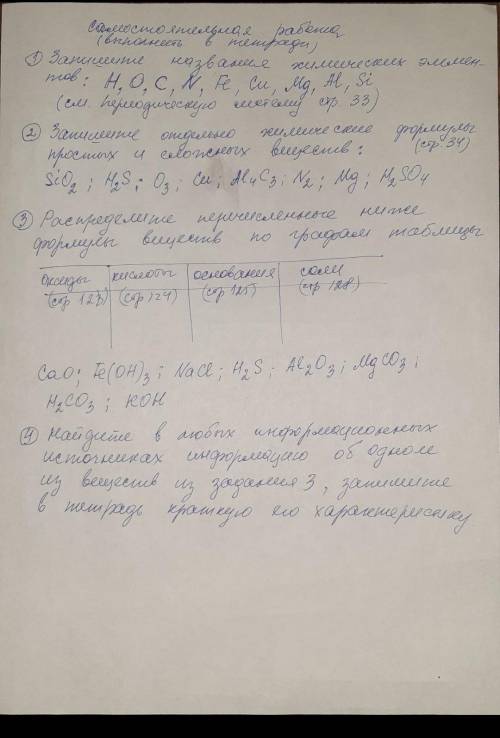 самостоятельная работа
(выполнить в тетради)
① Запишите названия химических элемен-
тов: H, O, C, N, Fe, Cu, Mg, Al, Si
(см. периодическую систему стр 33)
② Запишите отдельно химические формулы
простых и сложных веществ: (стр 34)
SiO₂; H₂S; O₃; Cu; Al₄C₃; N₂; Mg; H₂SO₄
③ Распределите перечисленные ниже
формулы веществ по графам таблицы
оксиды | кислоты | основания | соли
(стр 124) | (стр 125) | (стр 128)
CaO; Fe(OH)₃; NaCl; H₂S; Al₂O₃; MgCO₃;
H₂CO₃; KOH
④ Найдите в любых информационных
источниках информацию об одном
из веществ из задания 3, запишите
в тетрадь краткую его характеристику